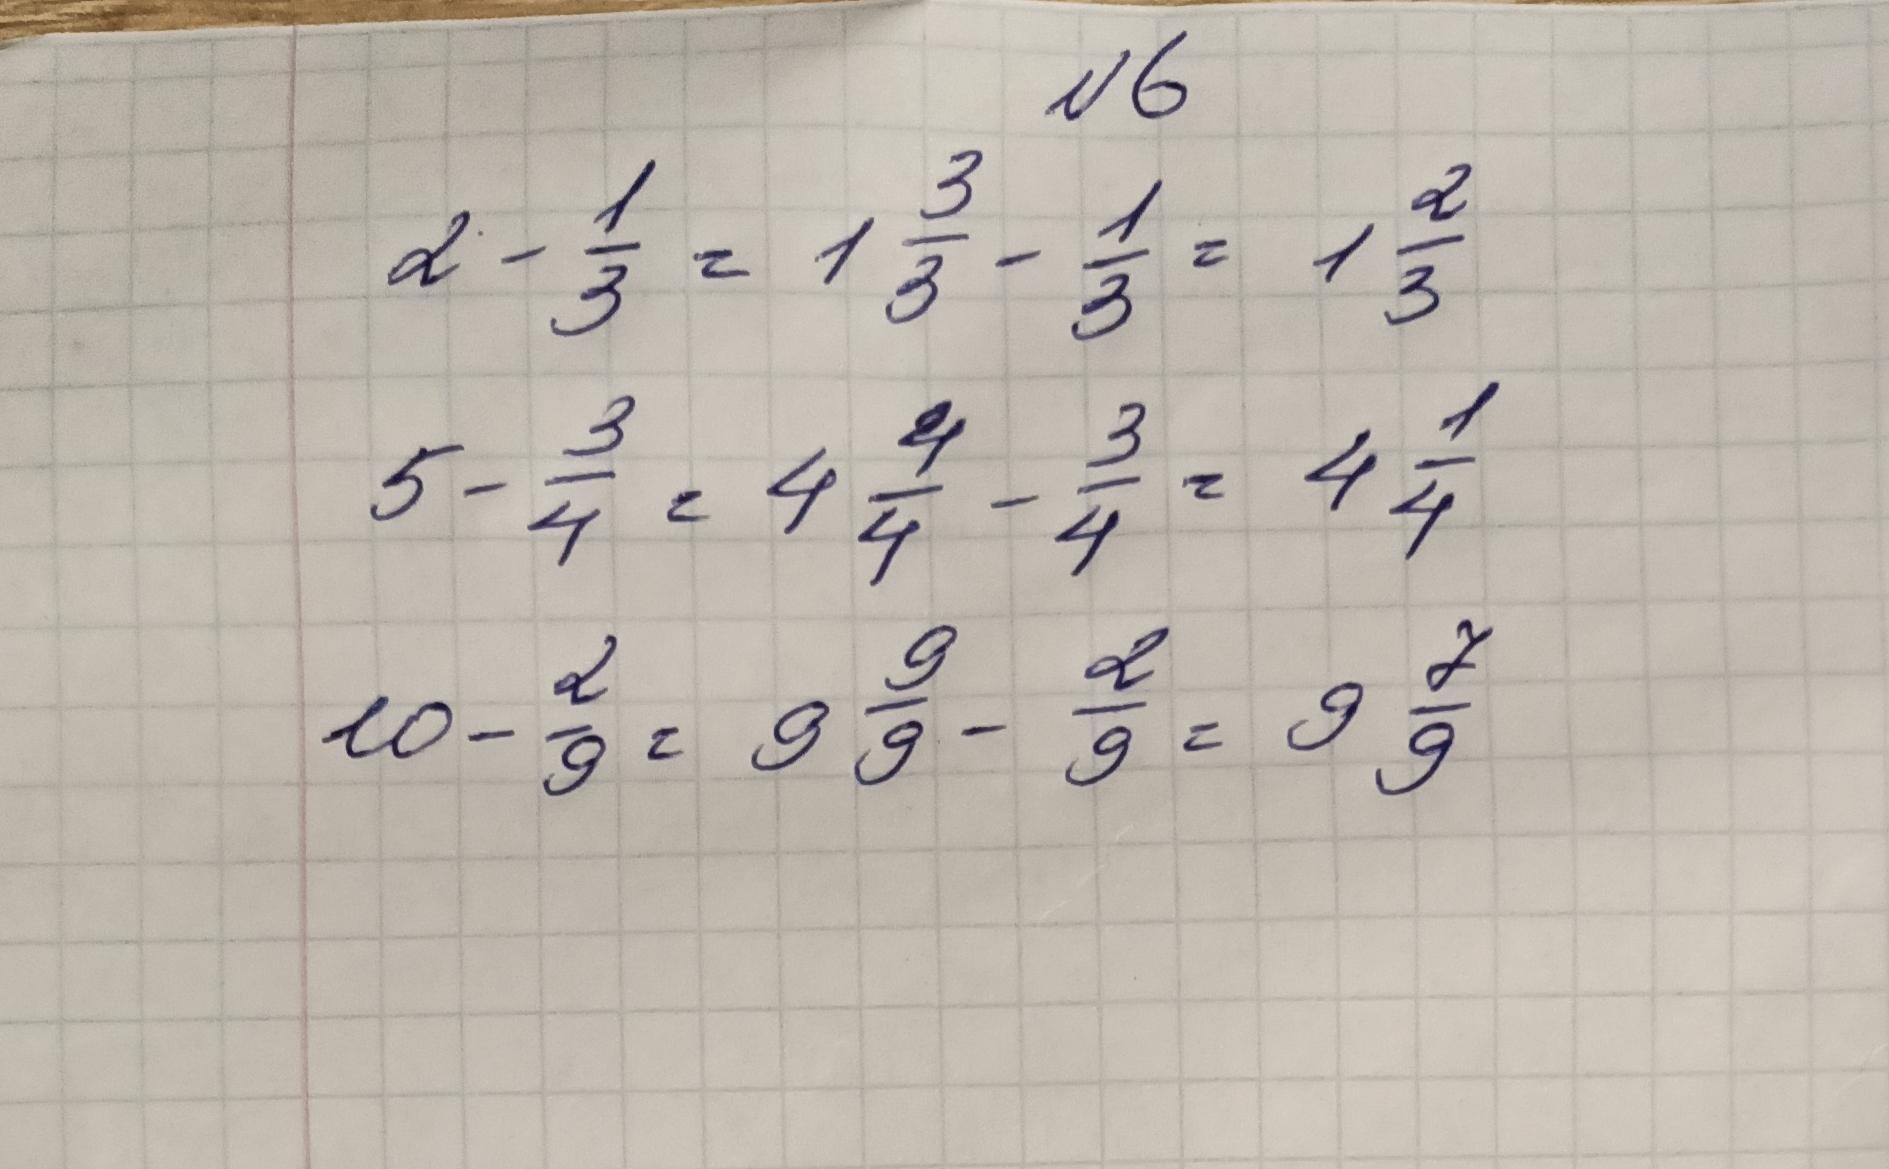 №6
2 - 1/3 = 1 3/3 - 1/3 = 1 2/3
5 - 3/4 = 4 4/4 - 3/4 = 4 1/4
10 - 2/9 = 9 9/9 - 2/9 = 9 7/9